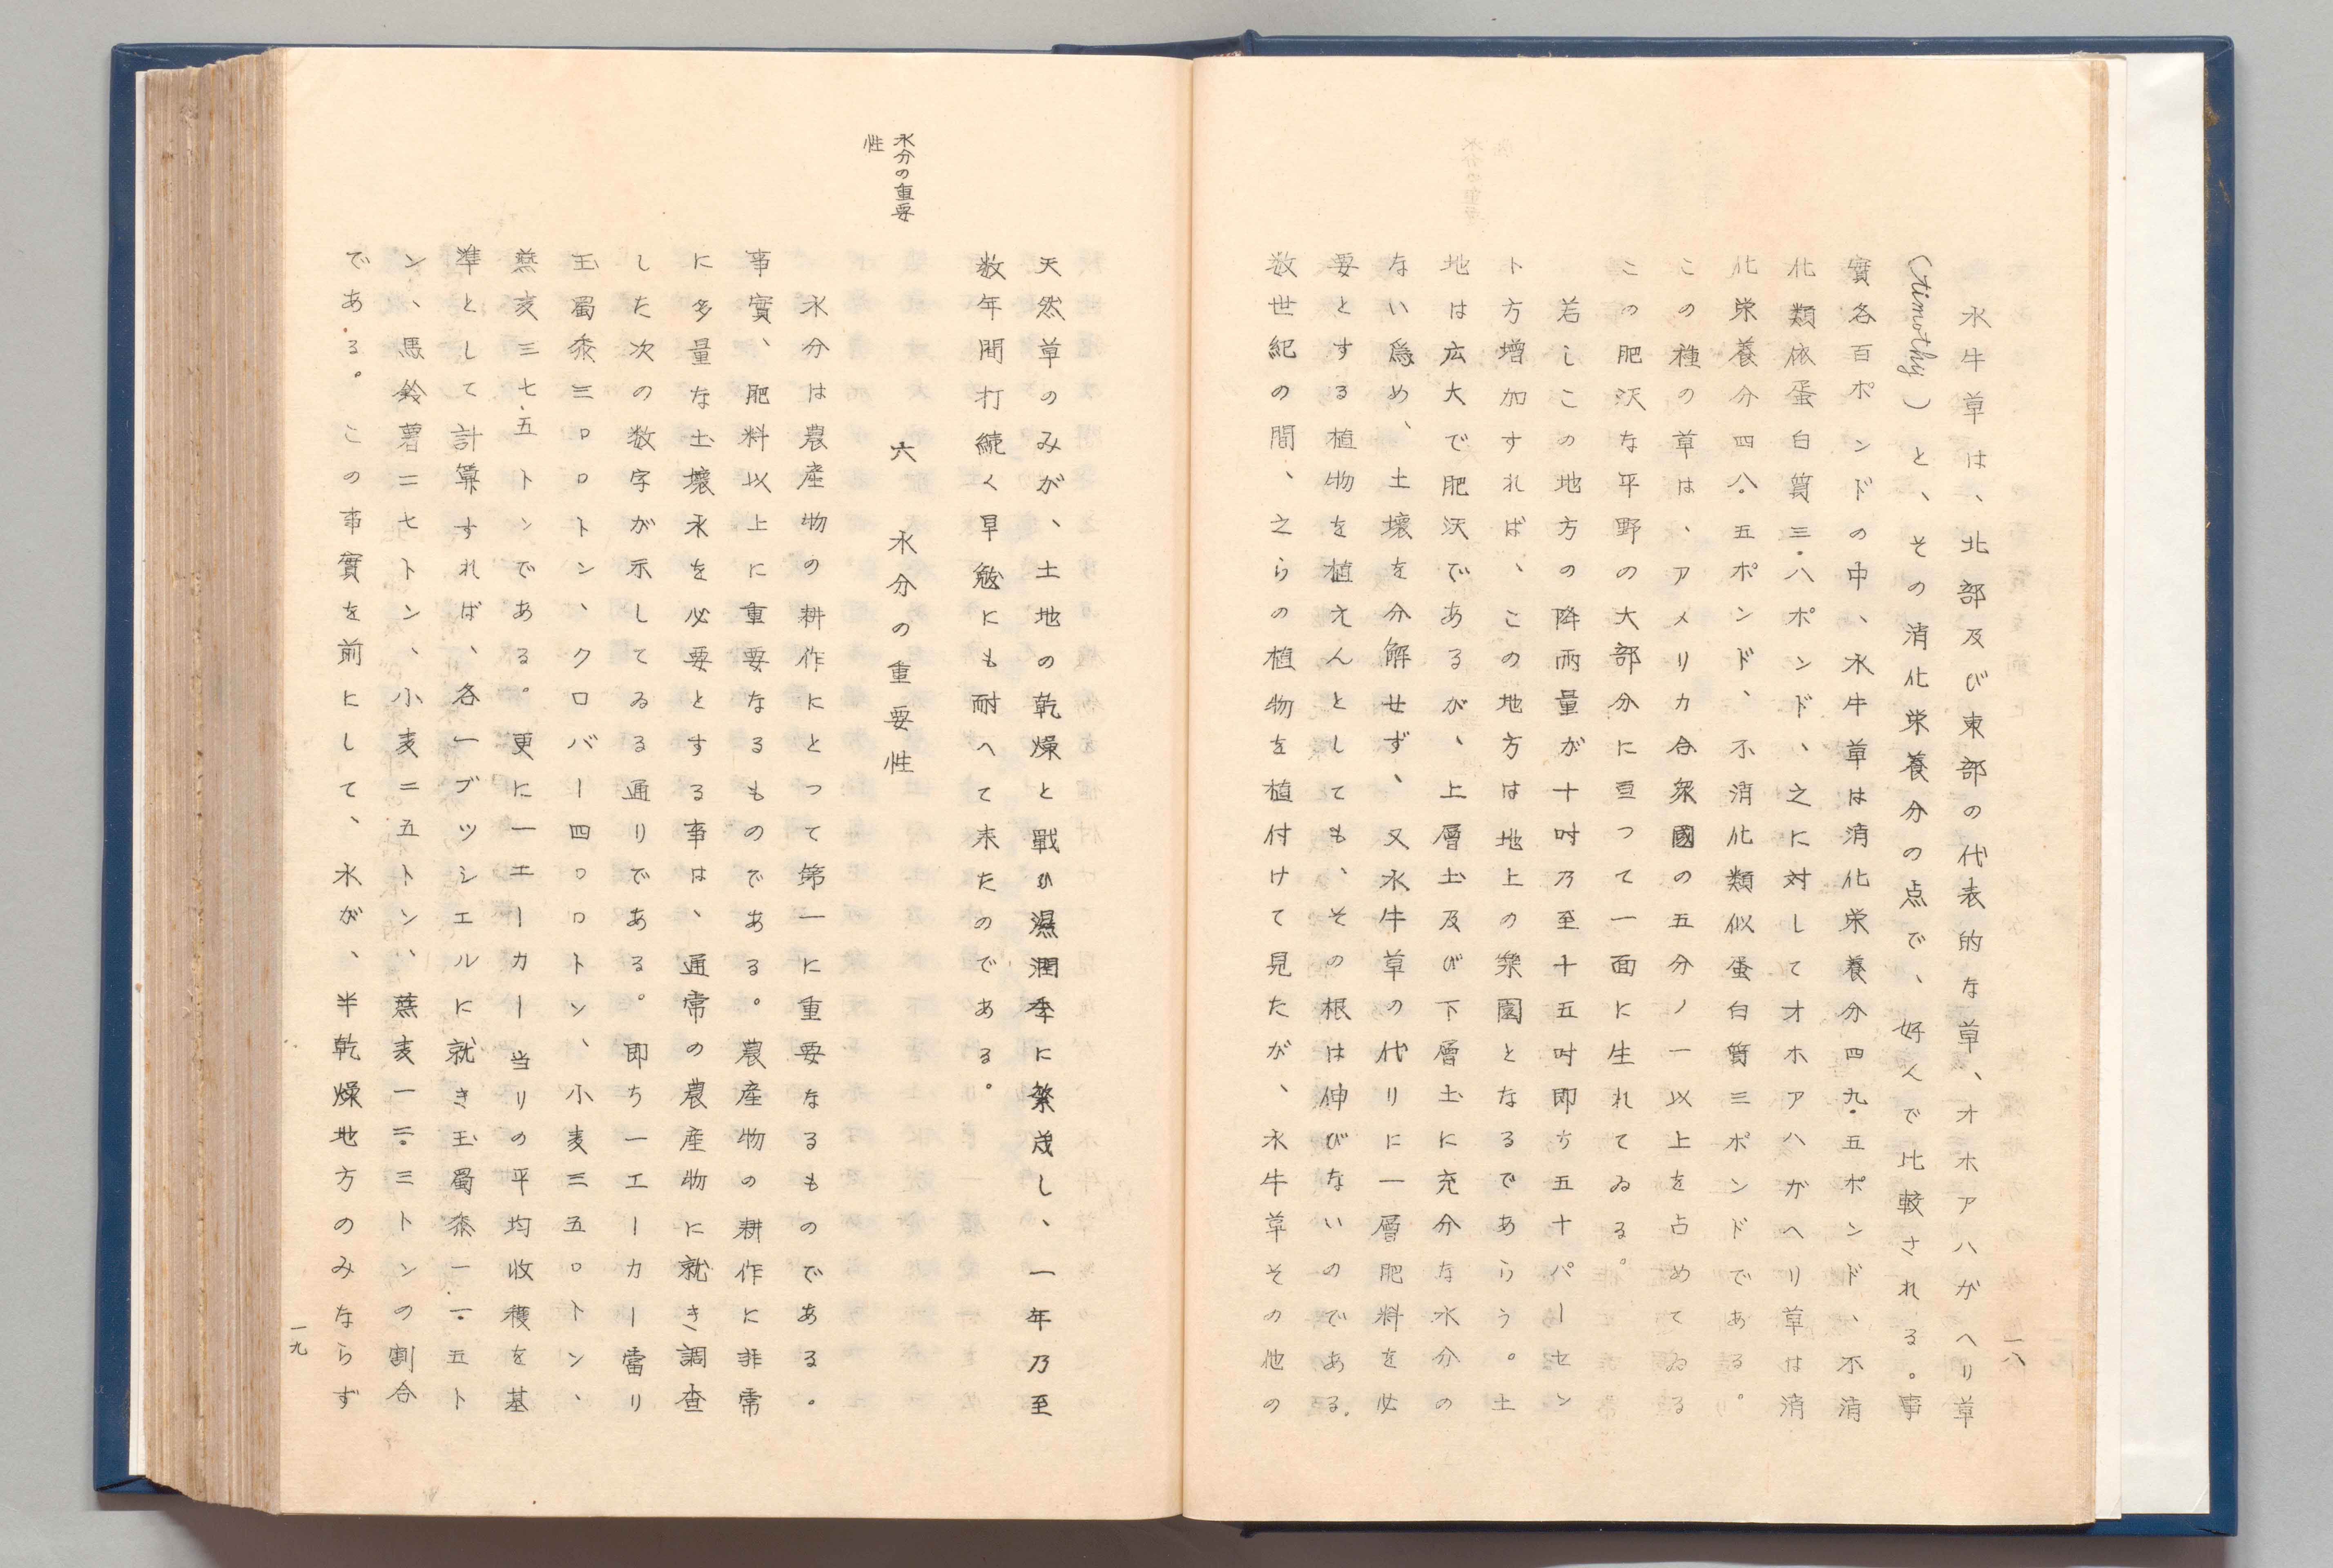 水牛草は、北部及び東部の代表的な草、オホアハガヘリ草
(timothy)と、その消化栄養分の点で、好んで比較される。事
實各百ポンドの中、水牛草は消化栄養分四九・五ポンド、不消
化類似蛋白質三・八ポンド、之に対してオホアハガヘリ草は消
化栄養分四八・五ポンド、不消化類似蛋白質三ポンドである。
この種の草は、アメリカ合衆國の五分ノ一以上を占めてゐる
この肥沃な平野の大部分に亘つて一面に生れてゐる。
若しこの地方の降雨量が十吋乃至十五吋即ち五十パーセン
ト方増加すれば、この地方は地上の樂園となるであらう。土
地は広大で肥沃であるが、上層土及び下層土に充分な水分の
ない爲め、土壤を分解せず、又水牛草の代りに一層肥料を必
要とする植物を植えんとしても、その根は伸びないのである。
数世紀の間、之らの植物を植付けて見たが、水牛草その他の
一八
天然草のみが、土地の乾燥と戰ひ濕潤季に繁茂し、一年乃至
数年間打続く早魃にも耐へて来たのである。
水分の重要
性
六 水分の重要性
水分は農産物の耕作にとつて第一に重要なるものである。
事實、肥料以上に重要なるものである。農産物の耕作に非常
に多量な土壤水を必要とする事は、通常の農産物に就き調査
した次の数字が示してゐる通りである。即ち一エーカー當り
玉蜀黍三〇〇トン、クロバー四〇〇トン、小麦三五〇トン、
燕麦三七・五トンである。更に一エーカー当りの平均收穫を基
準として計算すれば、各一ブツシエルに就き玉蜀黍一一・五ト
ン、馬鈴薯二七トン、小麦二五トン、燕麦一二・三トンの割合
である。この事實を前にして、水が、半乾燥地方のみならず
一九